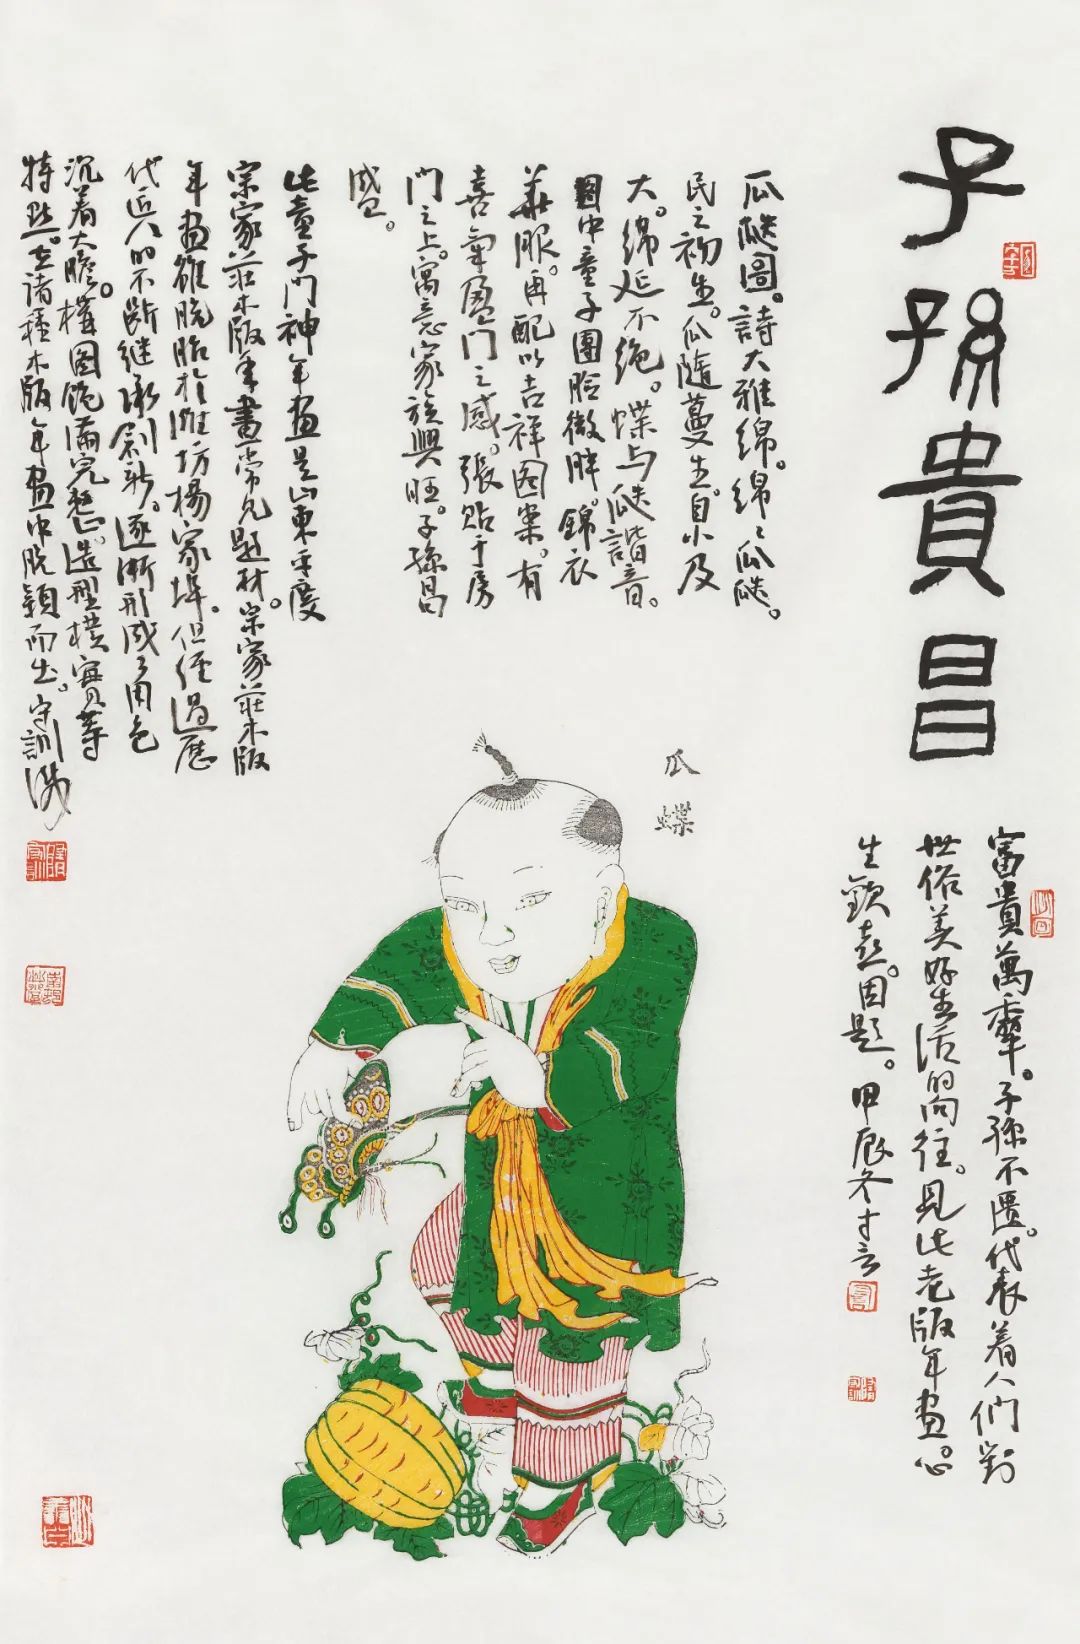 子孫貴昌
富貴萬
子孫不匱。代表着人們對
世俗美好生活的向往。見此老版年畫。心
生歡喜。因題。甲辰冬守訓
瓜瓞圖。詩大雅綿。綿々瓜瓞。
民之初生。瓜隨蔓生。自小及
大。綿延不絶。蝶与瓞諧音。
圖中童子團臉微胖。錦衣
華服。再配以吉祥图案。有
喜氣盈門之感。張貼于房
門之上。寓意家族興旺。子孫昌
盛。
此童子門神年畫是山東平度
宗家莊木版年畫常見題材。宗家莊木版
年畫雖脱胎於濰坊楊家埠。但經過歷
代匠人的不斷继承創新。逐漸形成了用色
沉着大膽。構图飽滿完整。造型樸實等
特點。在諸種木版年畫中脱穎而出。守訓識
瓜
蝶